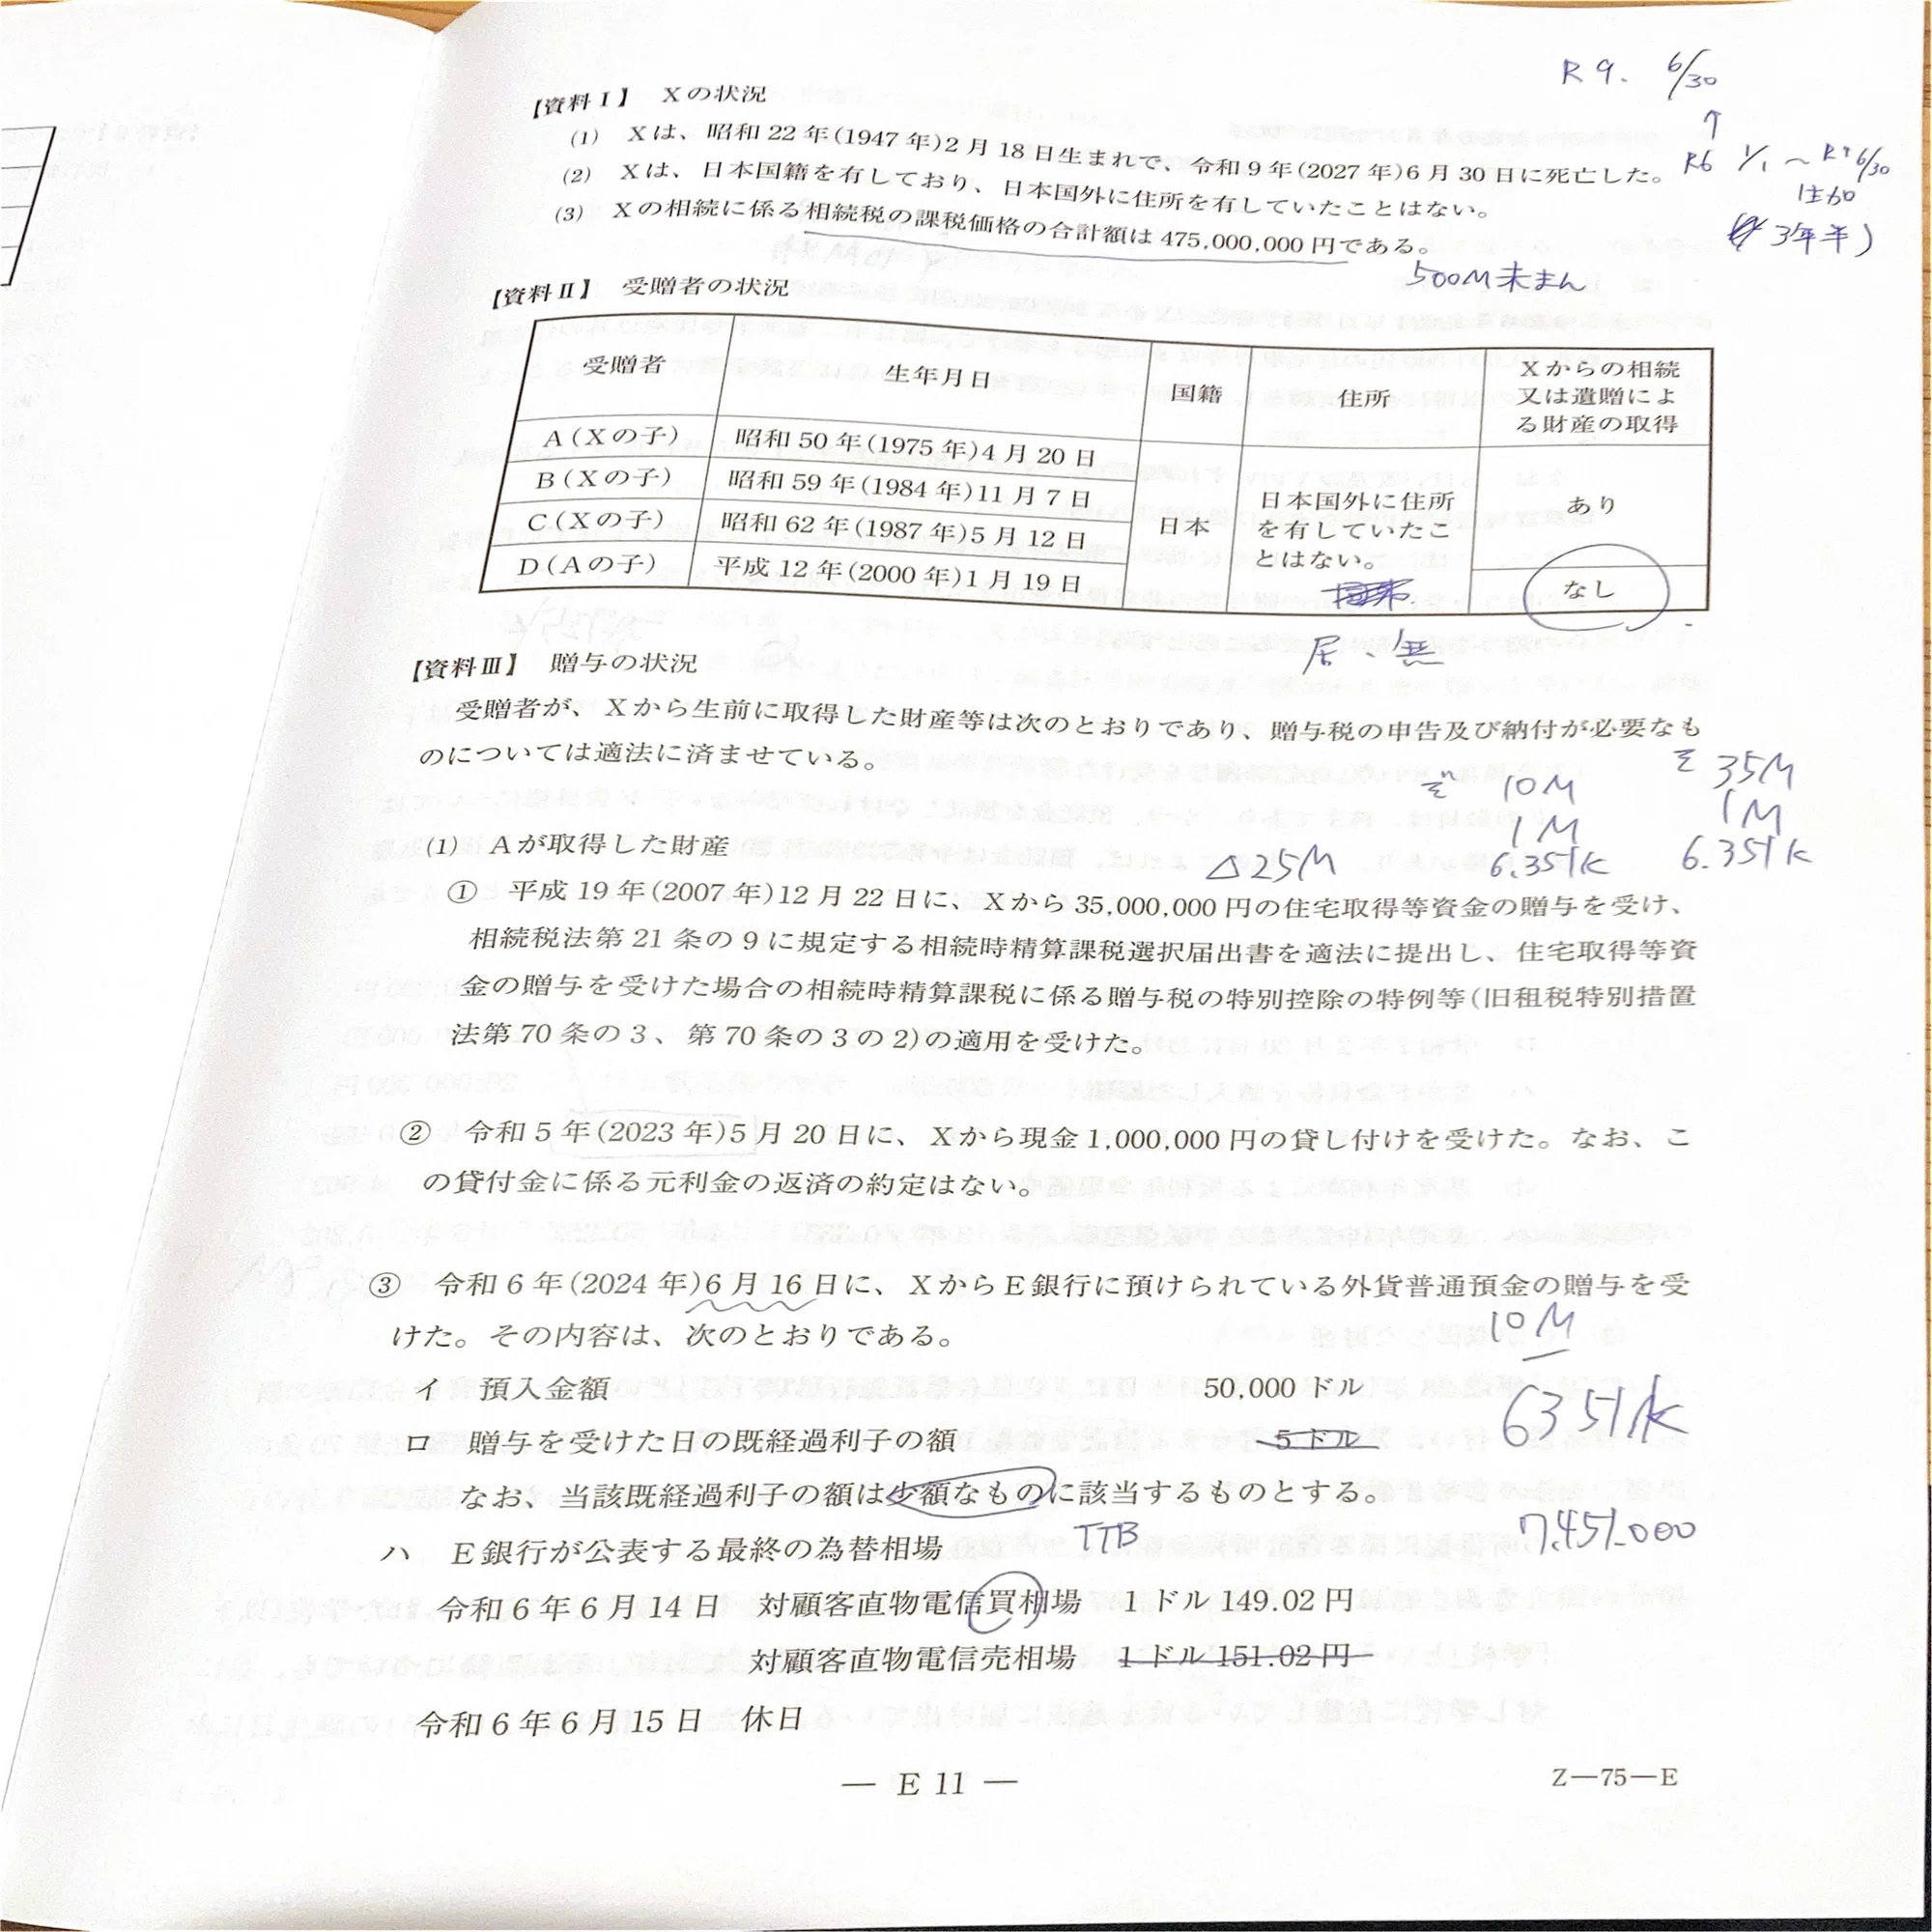 R9. 6/30
↑
R6 1/1 〜 R9 6/30
(3年半)
【資料Ⅰ】 Xの状況
(1) Xは、昭和22年(1947年)2月18日生まれで、令和9年(2027年)6月30日に死亡した。
(2) Xは、日本国籍を有しており、日本国外に住所を有していたことはない。
(3) Xの相続に係る相続税の課税価格の合計額は475,000,000円である。
500M未まん
【資料Ⅱ】 受贈者の状況
受贈者 生年月日 国籍 住所 Xからの相続又は遺贈による財産の取得
A(Xの子) 昭和50年(1975年)4月20日
B(Xの子) 昭和59年(1984年)11月7日
C(Xの子) 昭和62年(1987年)5月12日
D(Aの子) 平成12年(2000年)1月19日
日本
日本国外に住所
を有していたこ
とはない。
あり
なし
居、無
【資料Ⅲ】 贈与の状況
受贈者が、Xから生前に取得した財産等は次のとおりであり、贈与税の申告及び納付が必要なも
のについては適法に済ませている。
10M 35M
1M 1M
△25M 6.351k 6.351k
(1) Aが取得した財産
① 平成19年(2007年)12月22日に、Xから35,000,000円の住宅取得等資金の贈与を受け、
相続税法第21条の9に規定する相続時精算課税選択届出書を適法に提出し、住宅取得等資
金の贈与を受けた場合の相続時精算課税に係る贈与税の特別控除の特例等(旧租税特別措置
法第70条の3、第70条の3の2)の適用を受けた。
② 令和5年(2023年)5月20日に、Xから現金1,000,000円の貸し付けを受けた。なお、こ
の貸付金に係る元利金の返済の約定はない。
③ 令和6年(2024年)6月16日に、XからE銀行に預けられている外貨普通預金の贈与を受
けた。その内容は、次のとおりである。
10M
イ 預入金額 50,000ドル
6351k
ロ 贈与を受けた日の既経過利子の額 5ドル
なお、当該既経過利子の額は少額なものに該当するものとする。
TTB 7,451.000
ハ E銀行が公表する最終の為替相場
令和6年6月14日 対顧客直物電信買相場 1ドル149.02円
対顧客直物電信売相場 1ドル151.02円
令和6年6月15日 休日
— E 11 —
Z—75—E